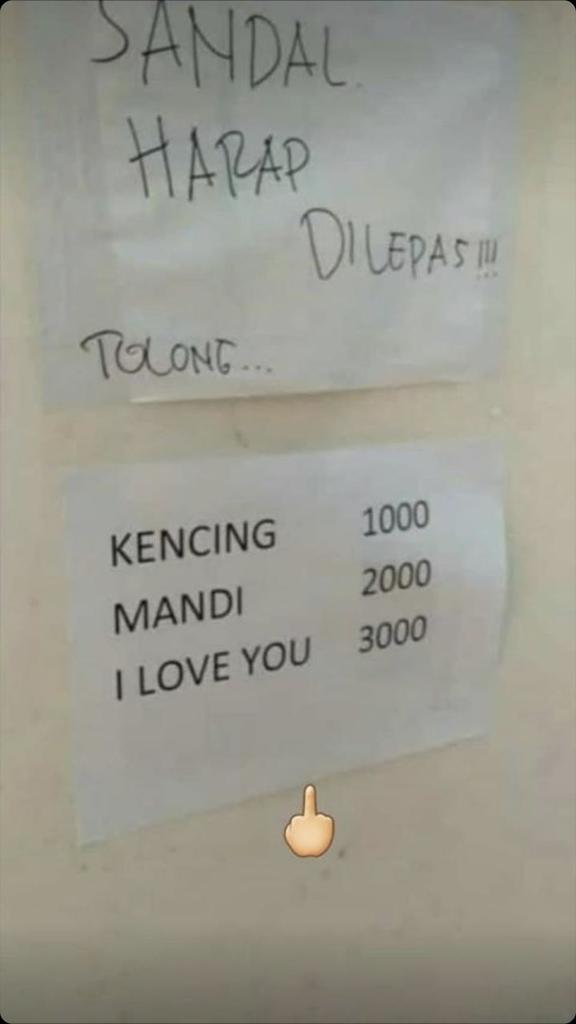 SANDAL.
HARAP
DILEPAS!!!
TOLONG...
KENCING 1000
MANDI 2000
I LOVE YOU 3000